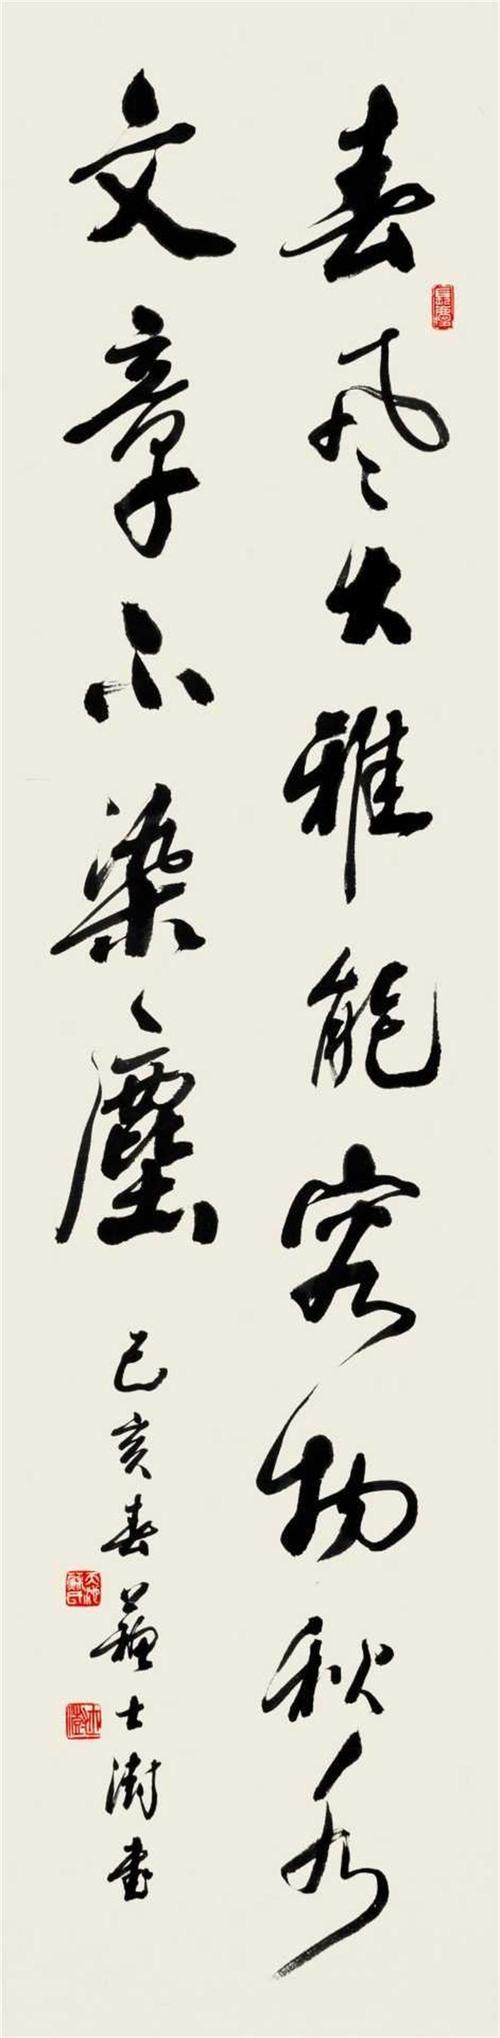 春风大雅能容物秋水
文章不染尘
己亥春苏士澍书